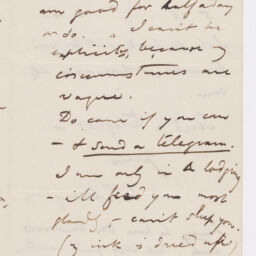 am good for half a day
or so. I can't be
explicit, because my
circumstances are
vague.
Do come if you can
- & send a telegram.
I am only in a lodging
- ill feed you most
gladly - can't sleep you.
(my ink is dried up)